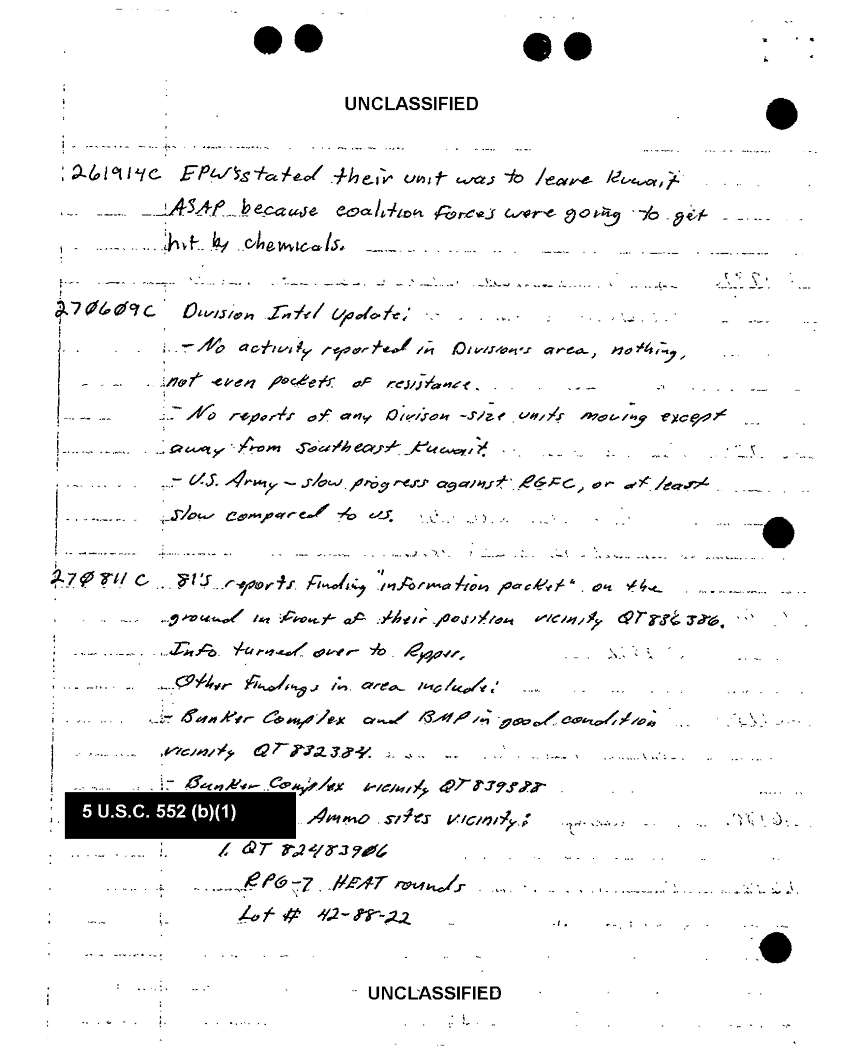 UNCLASSIFIED
261914C EPW's stated their unit was to leave Kuwait
ASAP because coalition forces were going to get
hit by chemicals.
270609C Division Intel Update:
- No activity reported in Division's area, nothing,
not even pockets of resistance.
- No reports of any Divison-size units moving except
away from Southeast Kuwait.
- U.S. Army - slow progress against RGFC, or at least
slow compared to us.
270811C 81's reports finding "information packet" on the
ground in front of their position vicinity QT836386.
Info turned over to Ripper.
Other findings in area include:
- Bunker Complex and BMP in good condition
vicinity QT832384.
- Bunker Complex vicinity QT839388
5 U.S.C. 552 (b)(1) Ammo sites vicinity:
1. QT 82483906
RPG-7 HEAT rounds
Lot # 42-88-22
UNCLASSIFIED